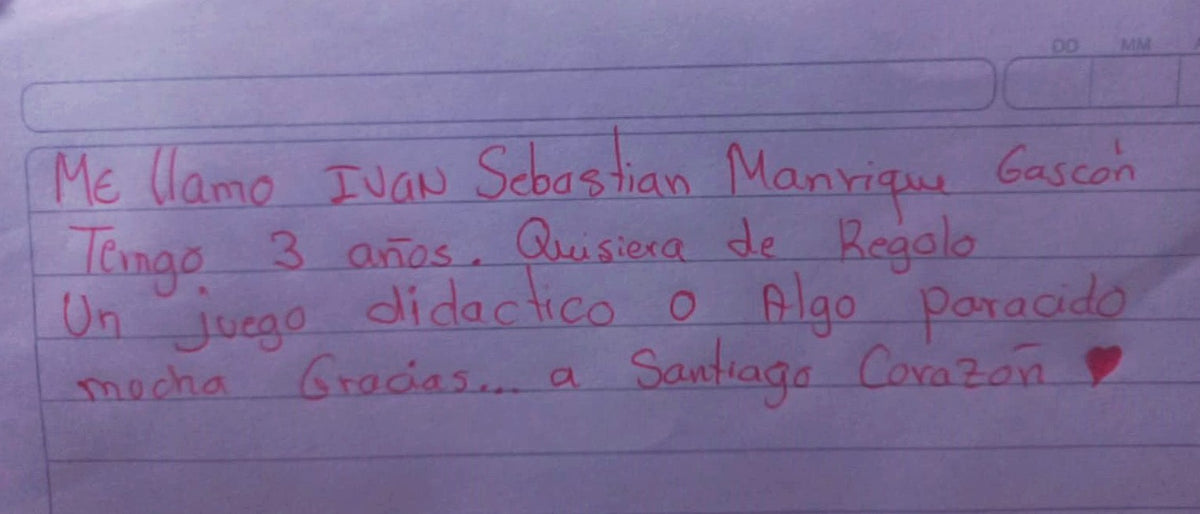 DD MM
Me llamo IVAN Sebastian Manrique Gascón
Temgo 3 años. Quisiera de Regolo
Un juego didactico o Algo paracido
mocha Gracias... a Santiago Corazoñ ♥